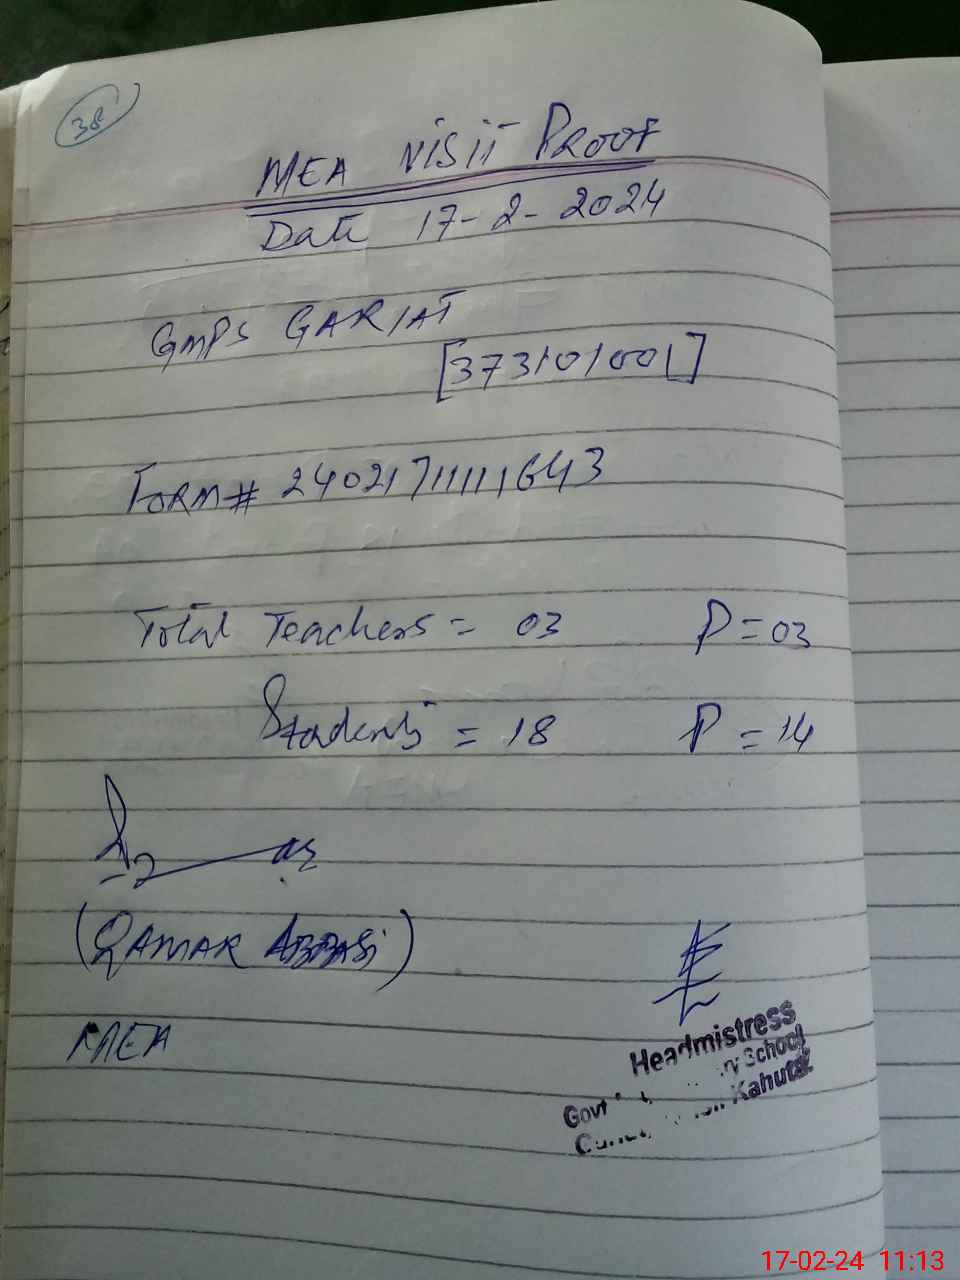 38
MEA VISIT PROOF
Date 17-2-2024
GMPS GARIAT
[373101001]
FORM# 2402171111643
Total Teachers = 03 P = 03
Students = 18 P = 14
(QAMAR ABBASI)
MEA
Headmistress
Govt School
Kahuta
17-02-24 11:13